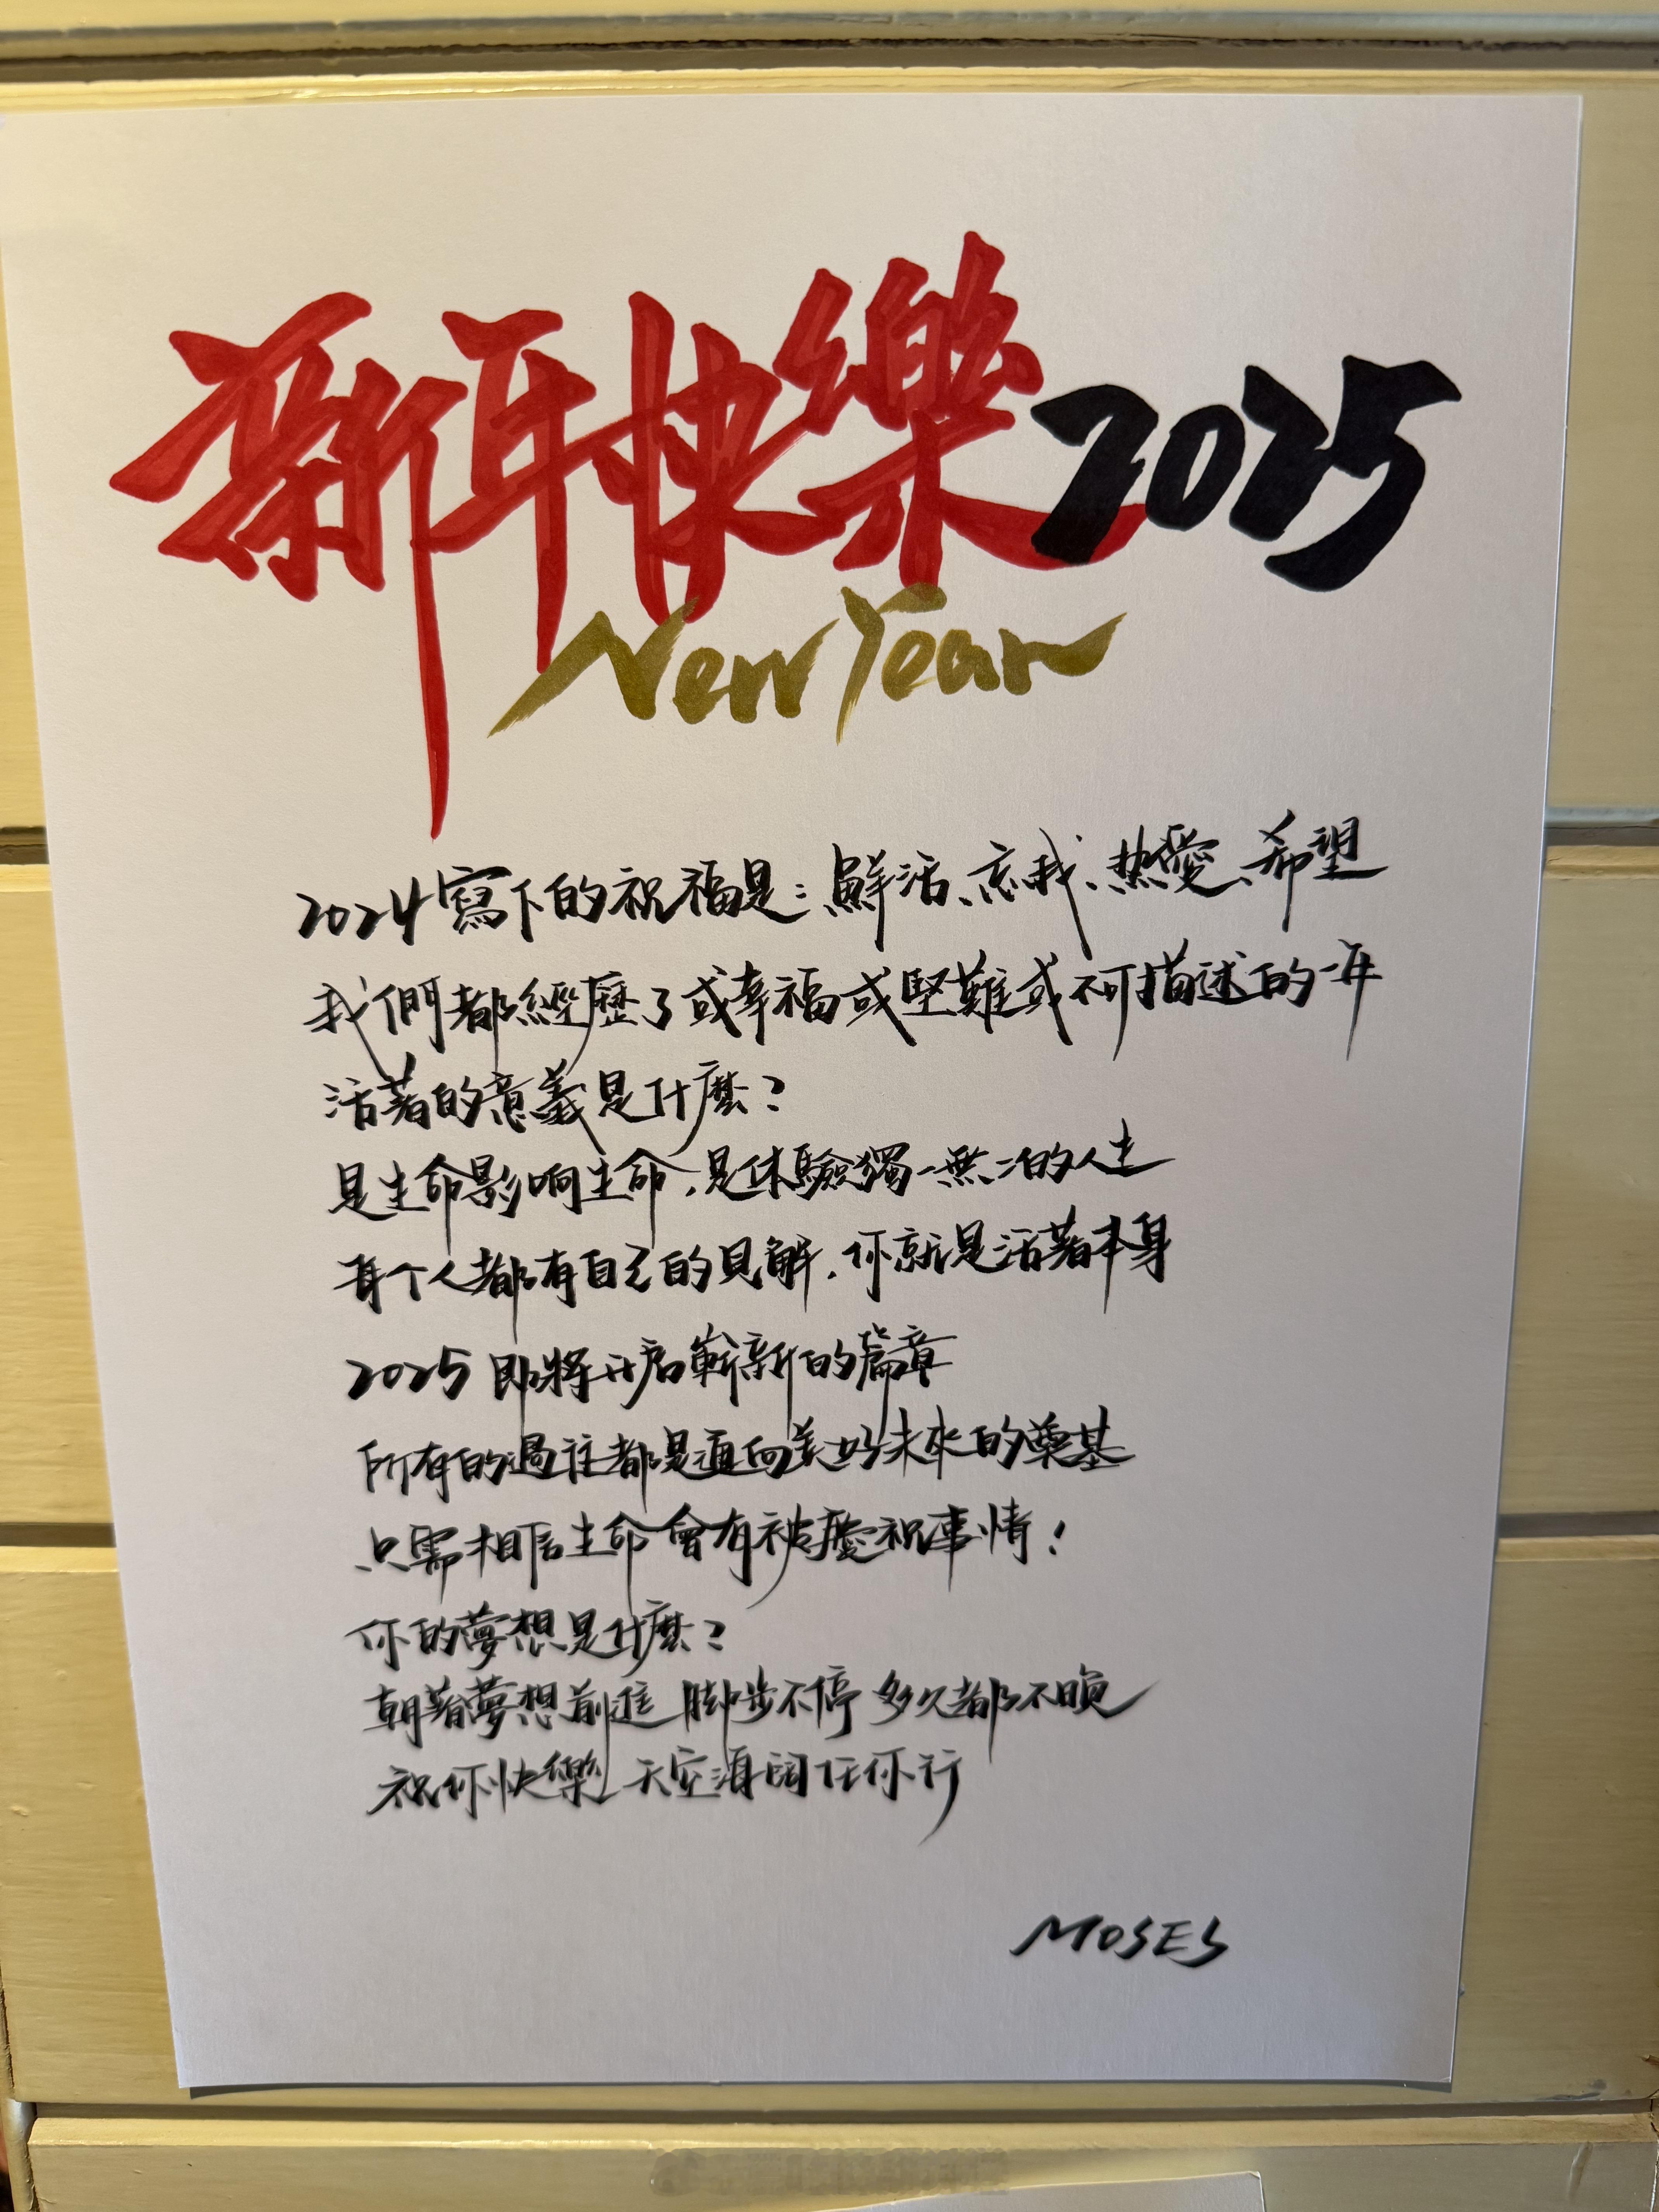 新年快樂2025
New Year
2024寫下的祝福是:鮮活、忘我、热愛、希望
我們都經歷了或幸福或堅難或不可描述的一年
活著的意義是什麼?
是生命影响生命,是体驗獨一無二的人生
每个人都有自己的見解,你就是活著本身
2025即將开启嶄新的篇章
所有的過往都是通向美好未來的奠基
只需相信生命會有被慶祝事情!
你的夢想是什麼?
朝著夢想前進 脚步不停 多久都不晚
祝你快樂 天空海阔任你行
MOSES